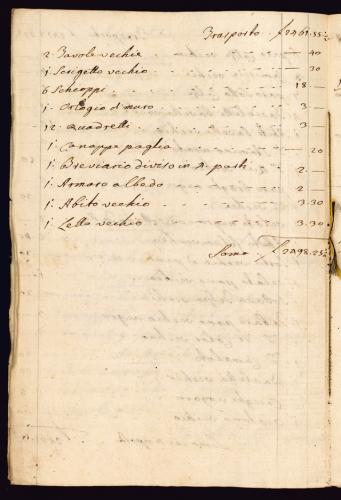 Trasporto £2461.55½
2. Tavole vechie — 40
1. Scrigetto vechio — 30
6 Schioppi 18 —
1. Orlogio d muro 3 —
12. Quadretti 3 —
1. Canappe paglia — 20
1. Breviario diviso in 4. parti 2 —
1. Armaro albedo 2 —
1. Abito vechio 3.30
1. Letto vechio 3.30
Soma £2498.25½